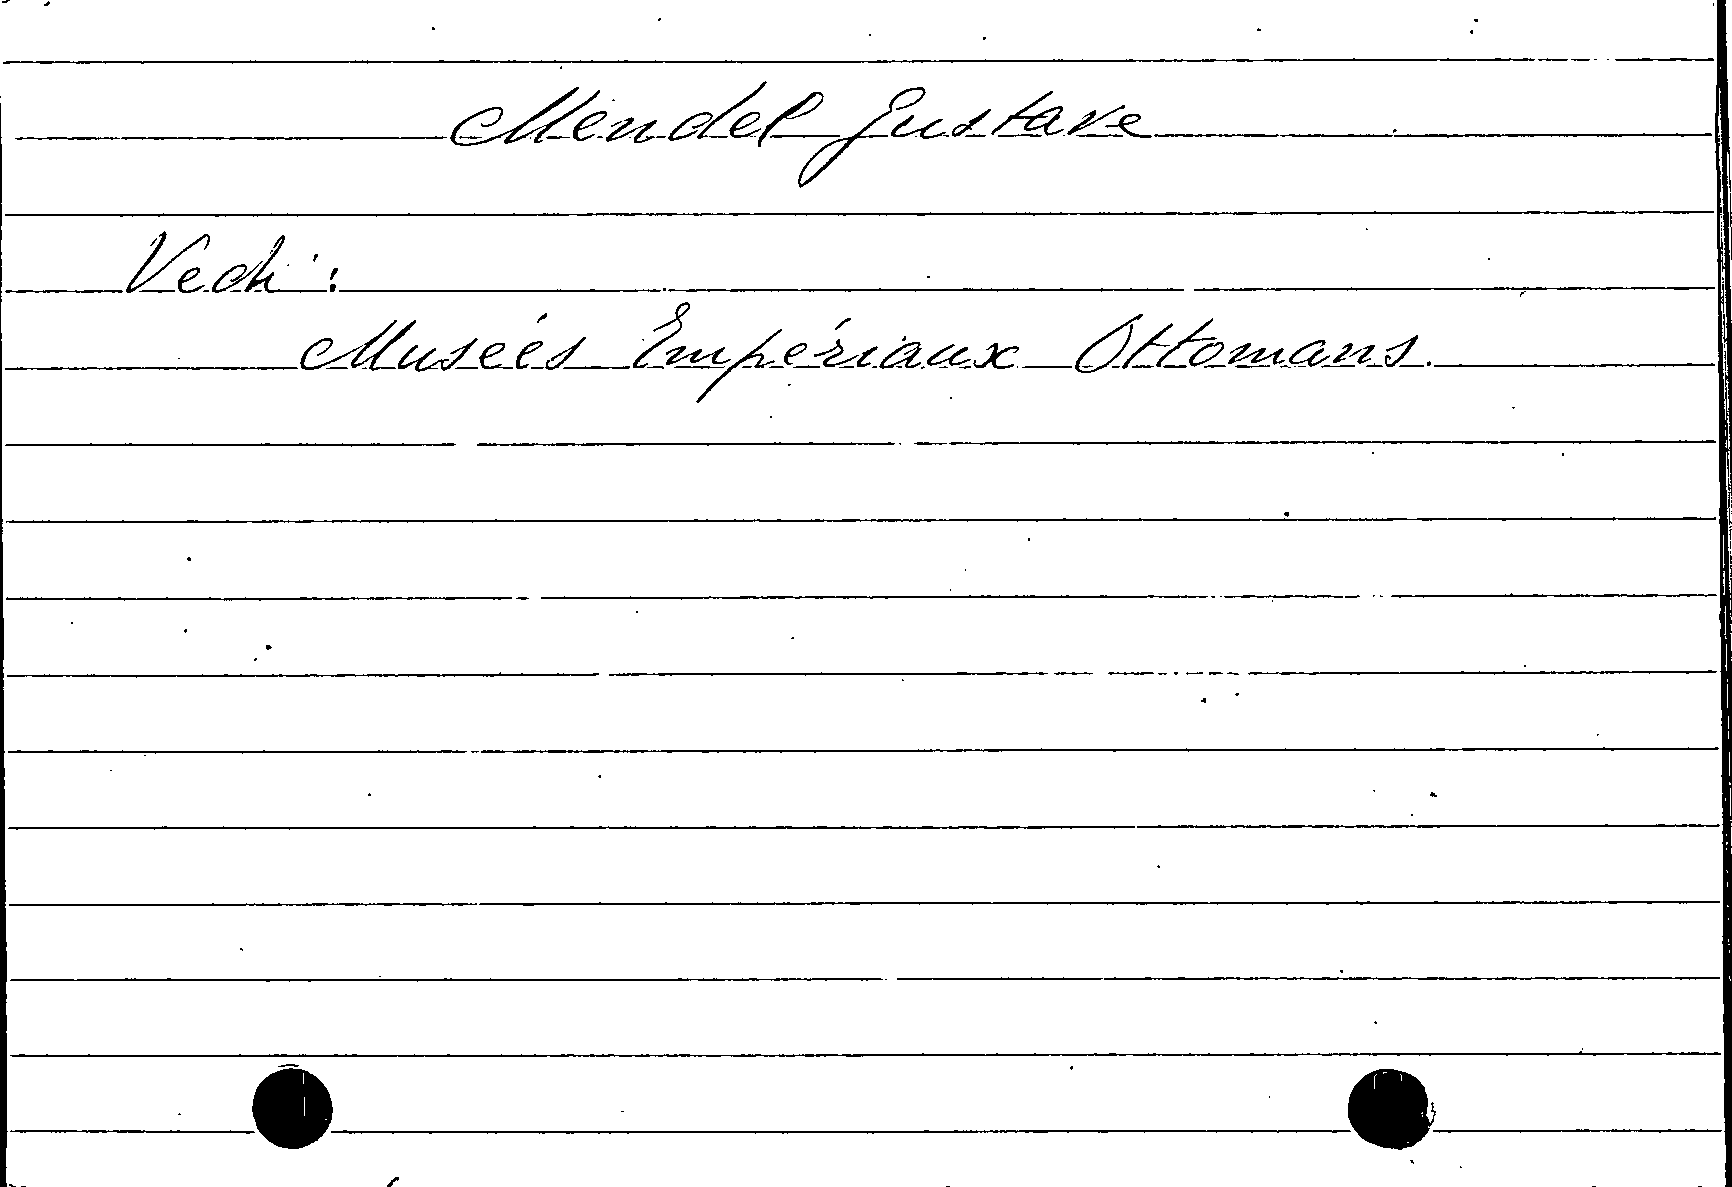 Mendel Gustave
Vedi:
Musées Empériaux Ottomans.